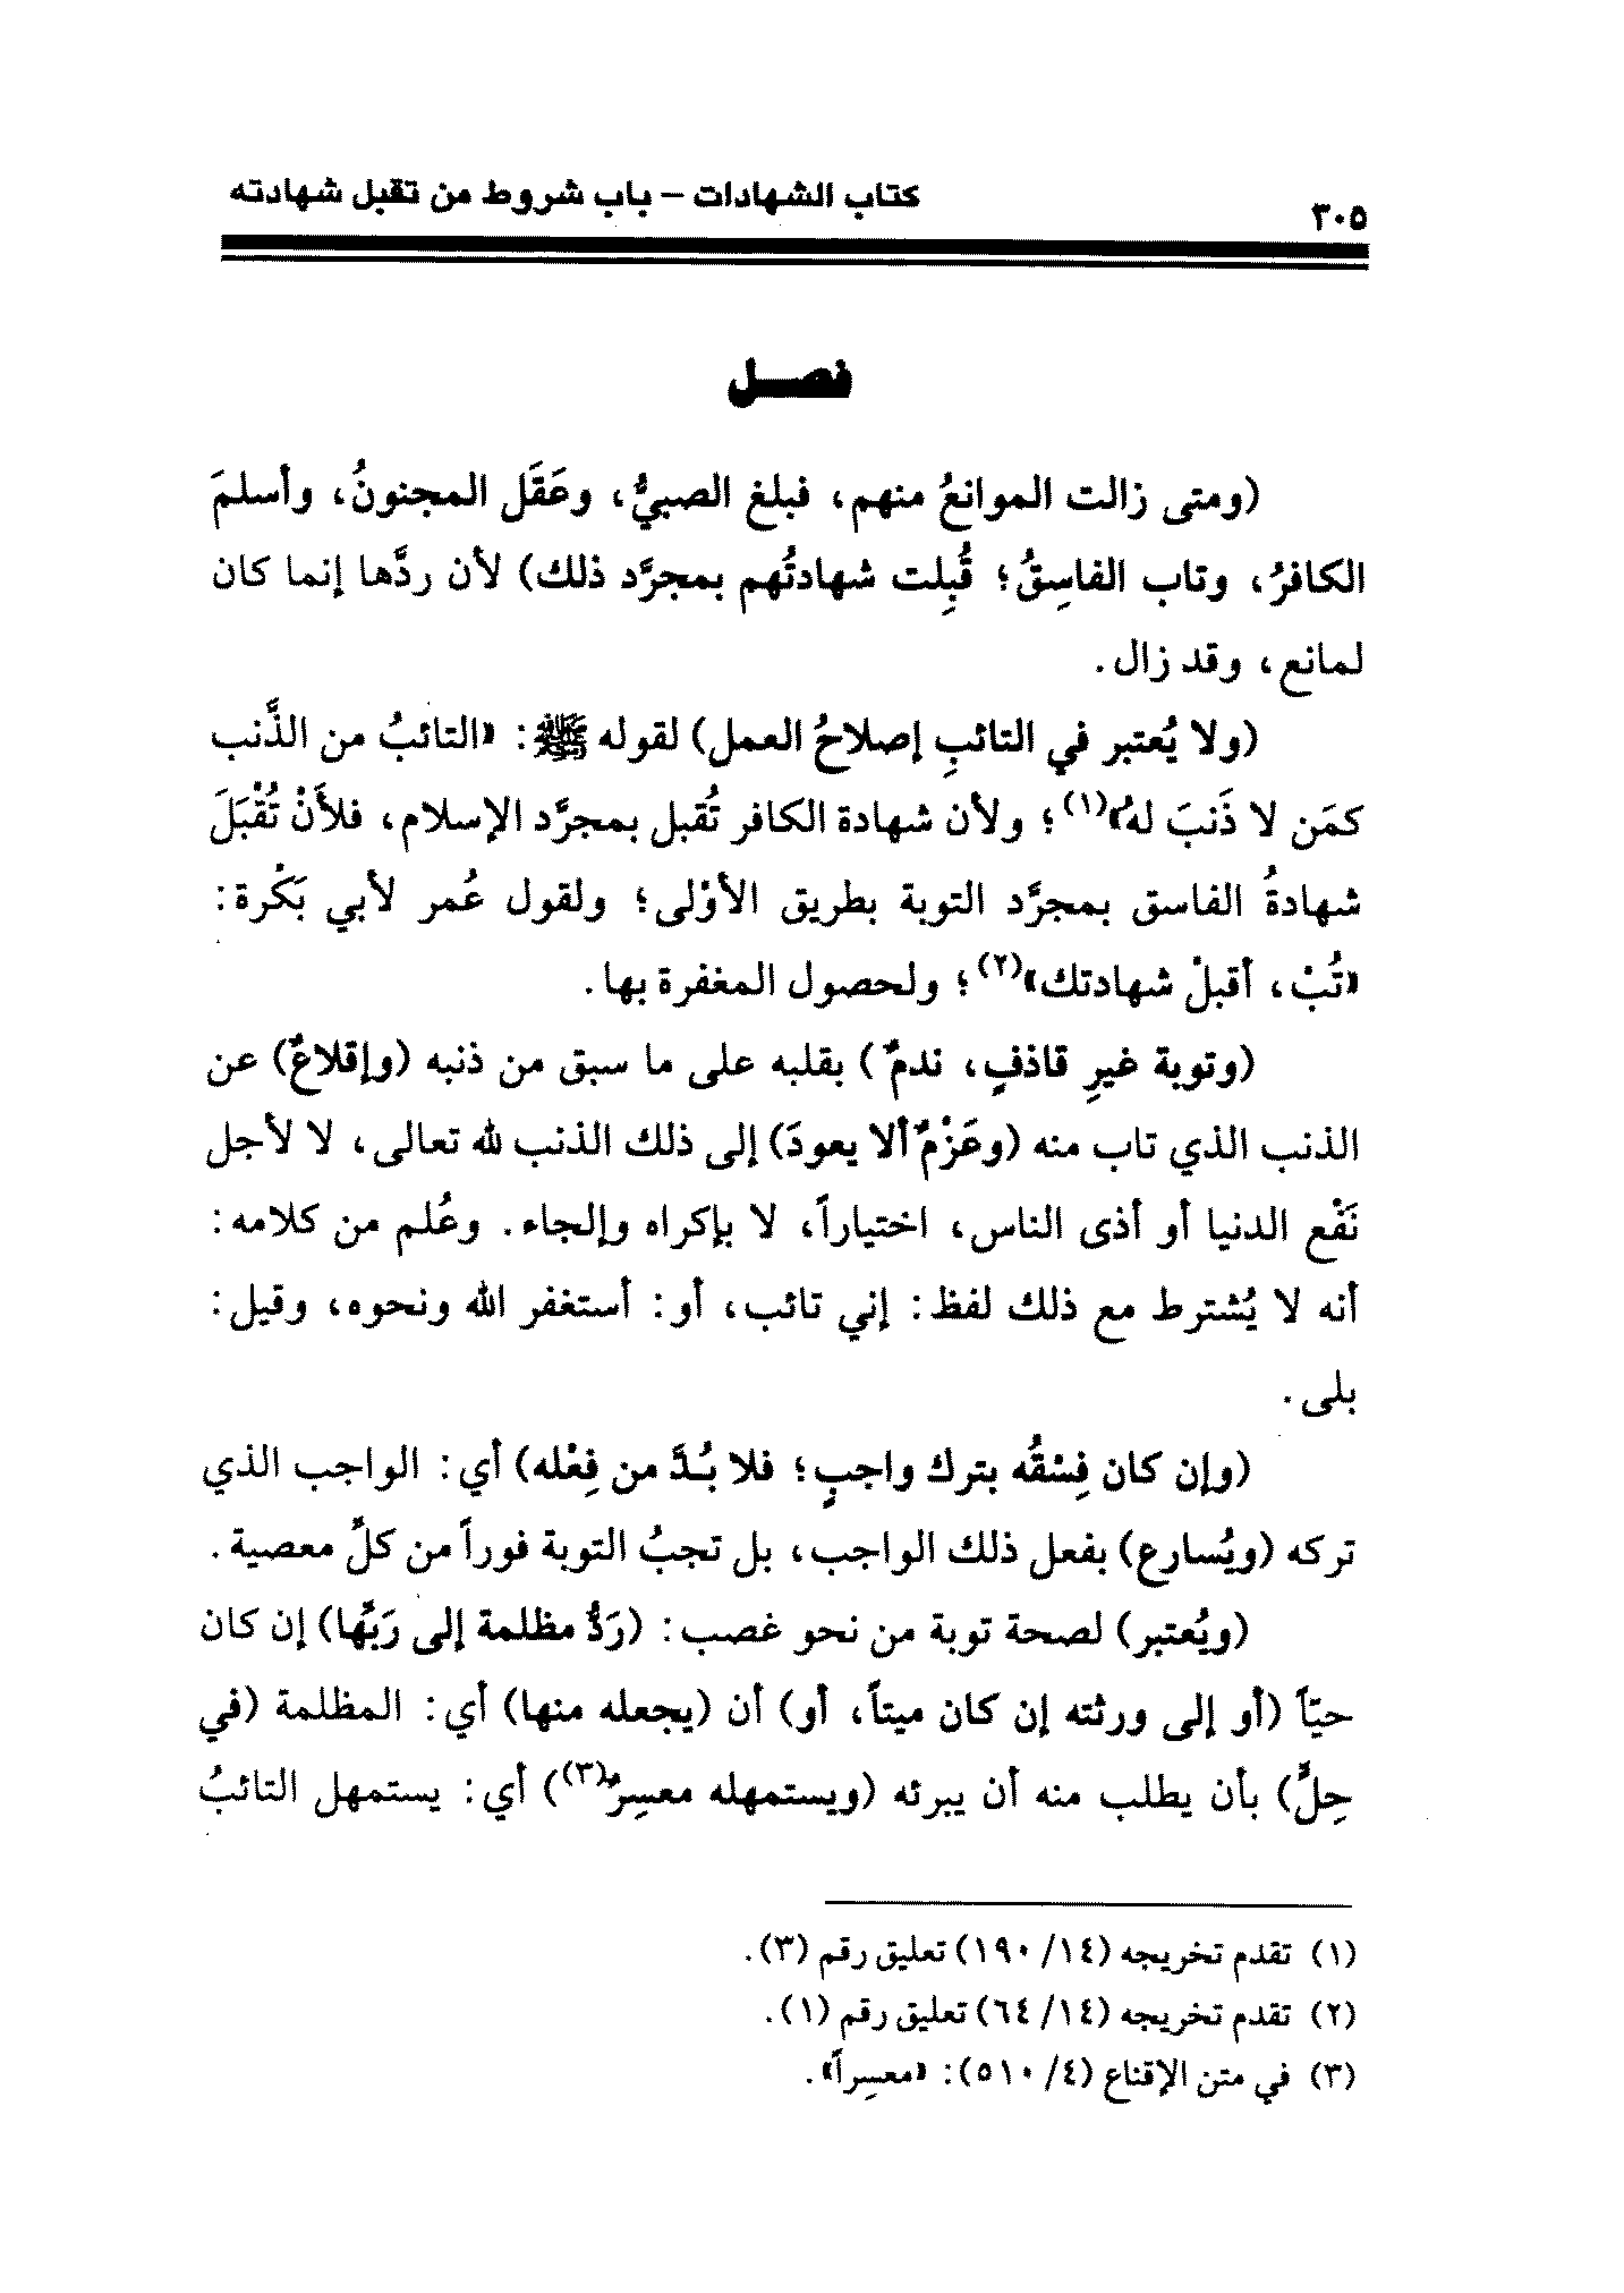 ٣٠٥
كتاب الشهادات – باب شروط من تقبل شهادته
فصـــل
(ومتى زالت الموانعُ منهم، فبلغ الصبيُّ، وعَقَل المجنونُ، وأسلمَ
الكافرُ، وتاب الفاسِقُ؛ قُبِلت شهادتُهم بمجرَّد ذلك) لأن ردَّها إنما كان
لمانع، وقد زال.
(ولا يُعتبر في التائبِ إصلاحُ العمل) لقوله ﷺ: «التائبُ من الذَّنب
كمَن لا ذَنبَ لهُ»(١)؛ ولأن شهادة الكافر تُقبل بمجرَّد الإسلام، فلأَنْ تُقْبَلَ
شهادةُ الفاسق بمجرَّد التوبة بطريق الأوْلى؛ ولقول عُمر لأبي بَكْرة:
«تُبْ، أقبلْ شهادتك»(٢)؛ ولحصول المغفرة بها.
(وتوبة غيرِ قاذفٍ، ندمٌ) بقلبه على ما سبق من ذنبه (وإقلاعٌ) عن
الذنب الذي تاب منه (وعَزْمٌ ألا يعودَ) إلى ذلك الذنب لله تعالى، لا لأجل
نَفْع الدنيا أو أذى الناس، اختياراً، لا بإكراه وإلجاء. وعُلم من كلامه:
أنه لا يُشترط مع ذلك لفظ: إني تائب، أو: أستغفر الله ونحوه، وقيل:
بلى.
(وإن كان فِسْقُه بترك واجبٍ؛ فلا بُـدَّ من فِعْله) أي: الواجب الذي
تركه (ويُسارع) بفعل ذلك الواجب، بل تجبُ التوبة فوراً من كلِّ معصية.
(ويُعتبر) لصحة توبة من نحو غصب: (رَدُّ مظلمة إلى رَبِّها) إن كان
حيّاً (أو إلى ورثته إن كان ميتاً، أو) أن (يجعله منها) أي: المظلمة (في
حِلٍّ) بأن يطلب منه أن يبرئه (ويستمهله معسِرٌ(٣)) أي: يستمهل التائبُ
(١) تقدم تخريجه (١٤/ ١٩٠) تعليق رقم (٣).
(٢) تقدم تخريجه (١٤/ ٦٤) تعليق رقم (١).
(٣) في متن الإقناع (٤/ ٥١٠): «معسِراً».